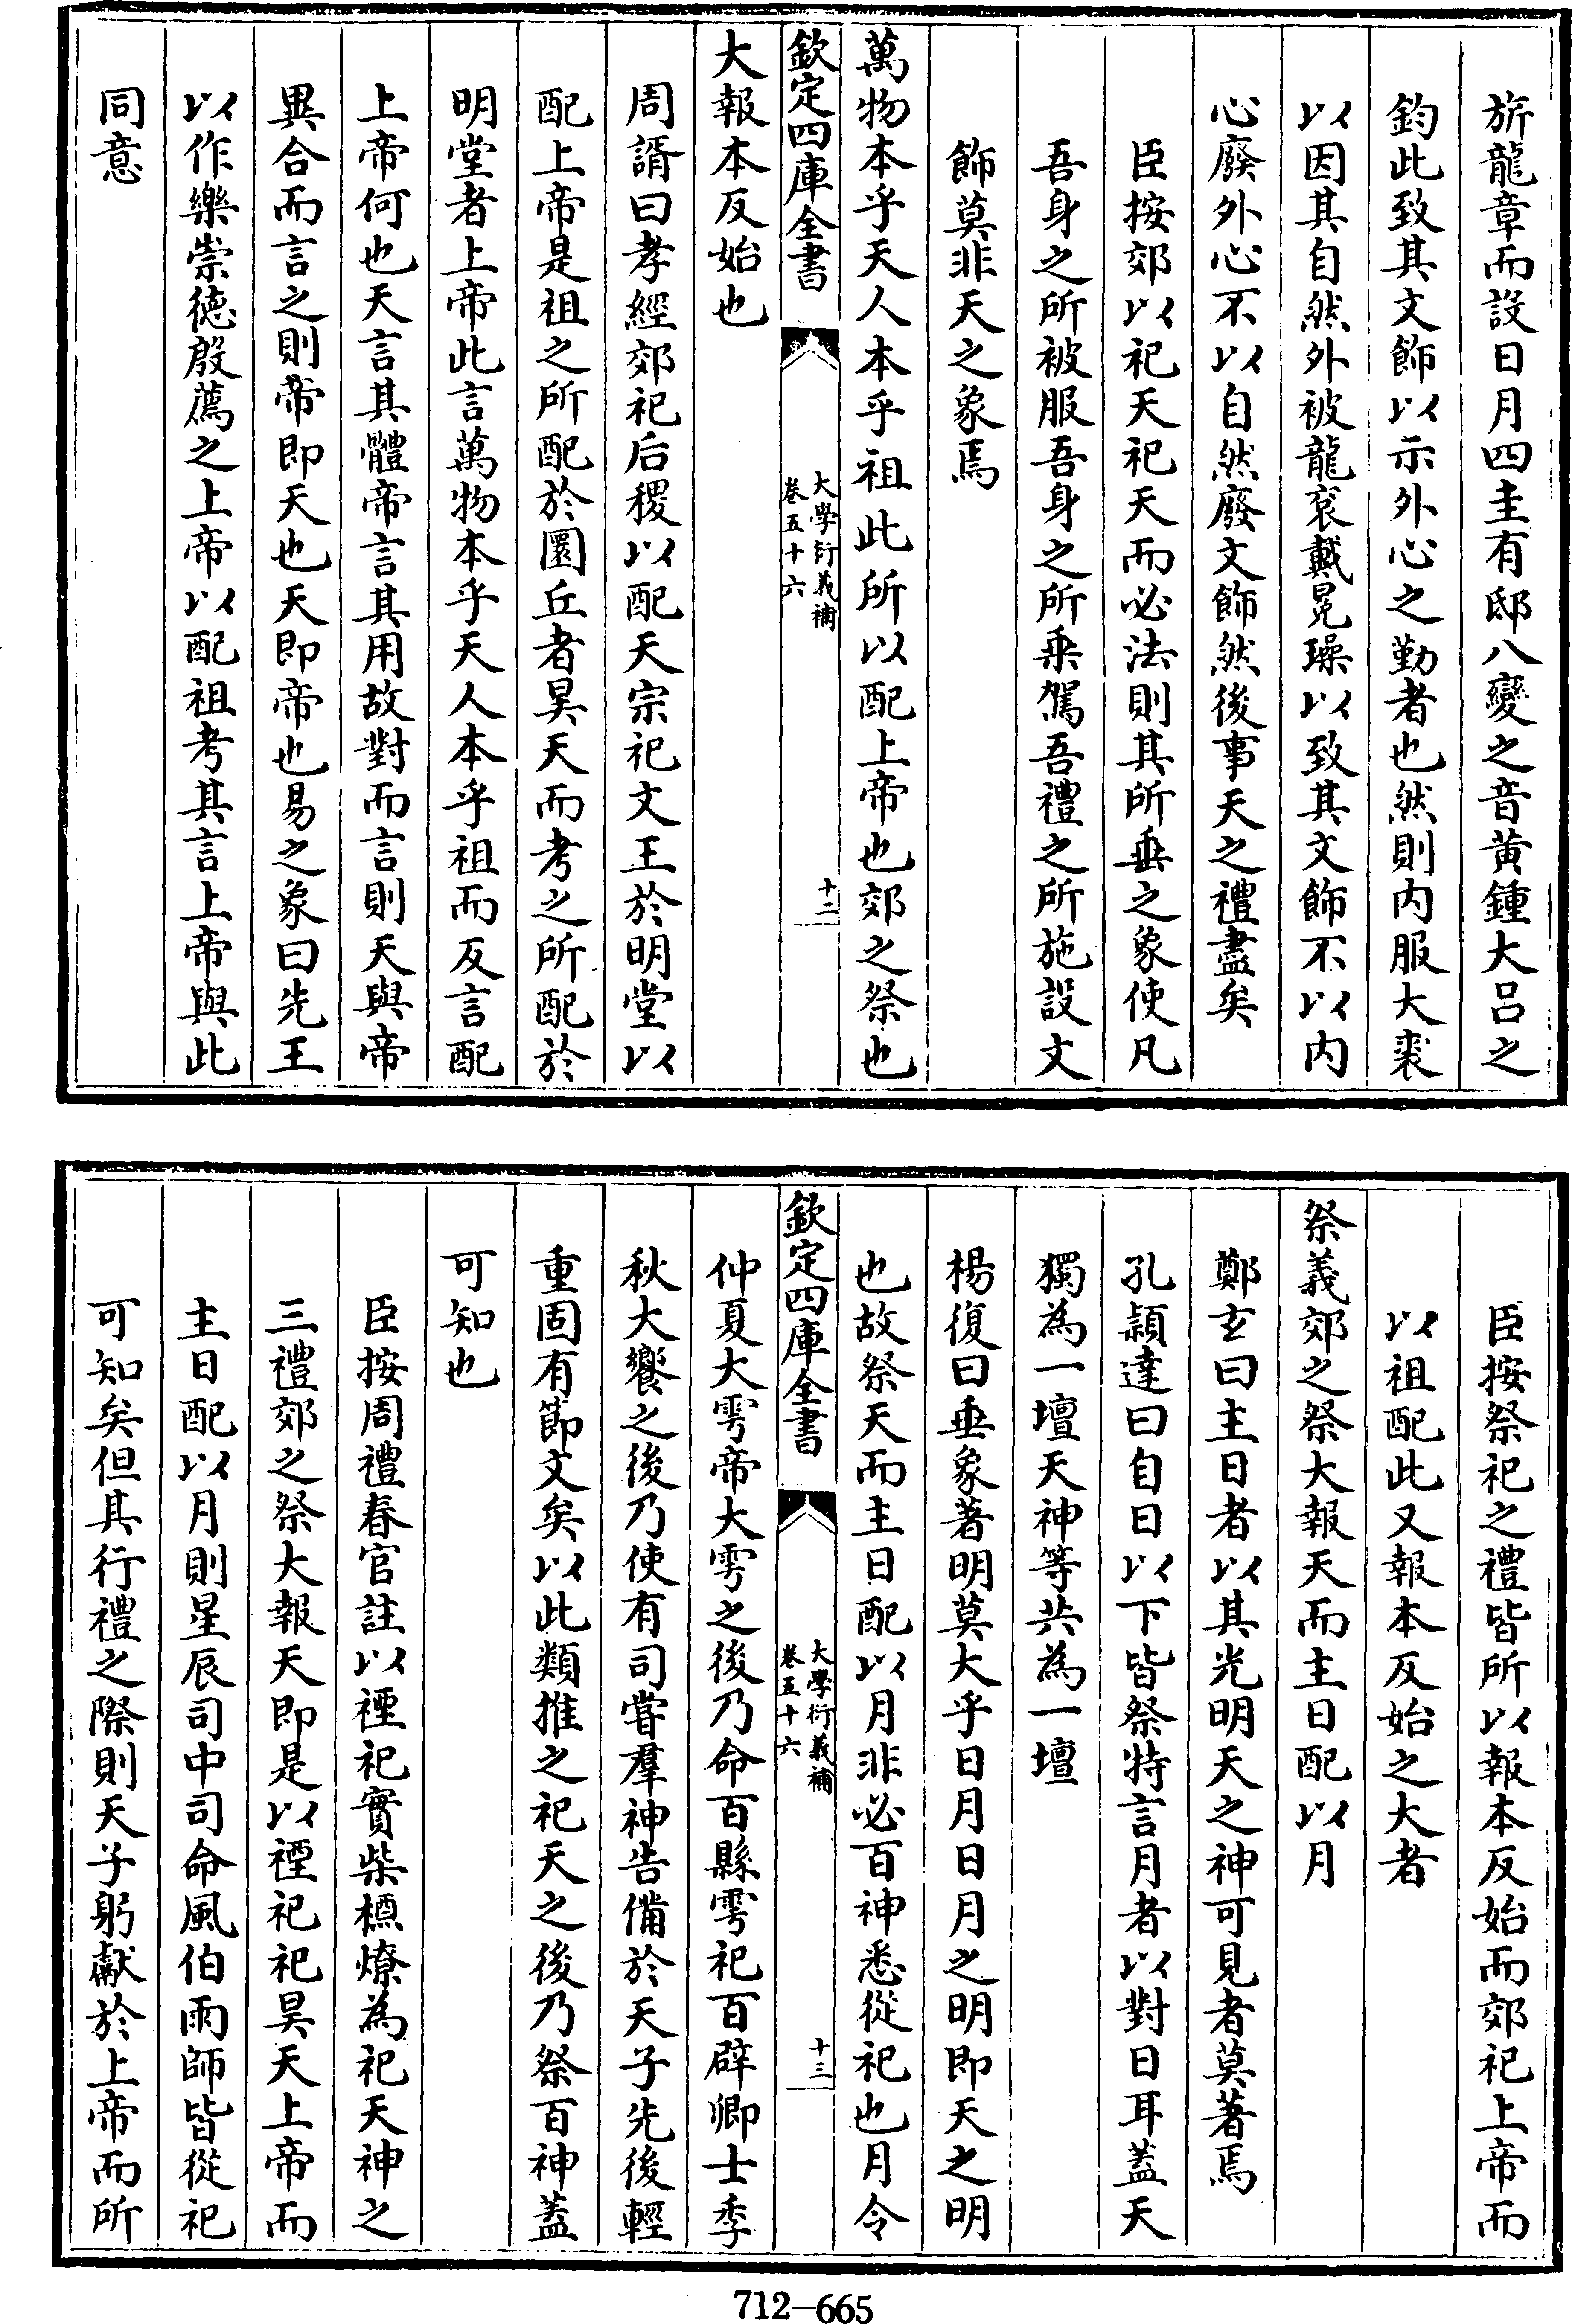 旂龍章而設日月四圭有邸八變之音黄鍾大吕之
鈞此致其文飾以示外心之勤者也然則内服大裘
以因其自然外被龍衮戴冕璪以致其文飾不以内
心廢外心不以自然廢文飾然後事天之禮盡矣
臣按郊以祀天祀天而必法則其所垂之象使凡
吾身之所被服吾身之所乗駕吾禮之所施設文
飾莫非天之象焉
萬物本乎天人本乎祖此所以配上帝也郊之祭也
欽定四庫全書
大學衍義補
卷五十六
十二
大報本反始也
周諝曰孝經郊祀后稷以配天宗祀文王於明堂以
配上帝是祖之所配於圜丘者昊天而考之所配於
明堂者上帝此言萬物本乎天人本乎祖而反言配
上帝何也天言其體帝言其用故對而言則天與帝
異合而言之則帝即天也天即帝也易之象曰先王
以作樂崇德殷薦之上帝以配祖考其言上帝與此
同意
臣按祭祀之禮皆所以報本反始而郊祀上帝而
以祖配此又報本反始之大者
祭義郊之祭大報天而主日配以月
鄭玄曰主日者以其光明天之神可見者莫著焉
孔頴達曰自日以下皆祭特言月者以對日耳蓋天
獨為一壇天神等共為一壇
楊復曰垂象著明莫大乎日月日月之明即天之明
也故祭天而主日配以月非必百神悉從祀也月令
欽定四庫全書
大學衍義補
卷五十六
十三
仲夏大雩帝大雩之後乃命百縣雩祀百辟卿士季
秋大饗之後乃使有司嘗羣神告備於天子先後輕
重固有節文矣以此類推之祀天之後乃祭百神蓋
可知也
臣按周禮春官註以禋祀實柴槱燎為祀天神之
三禮郊之祭大報天即是以禋祀祀昊天上帝而
主日配以月則星辰司中司命風伯雨師皆從祀
可知矣但其行禮之際則天子躬獻於上帝而所
712-665